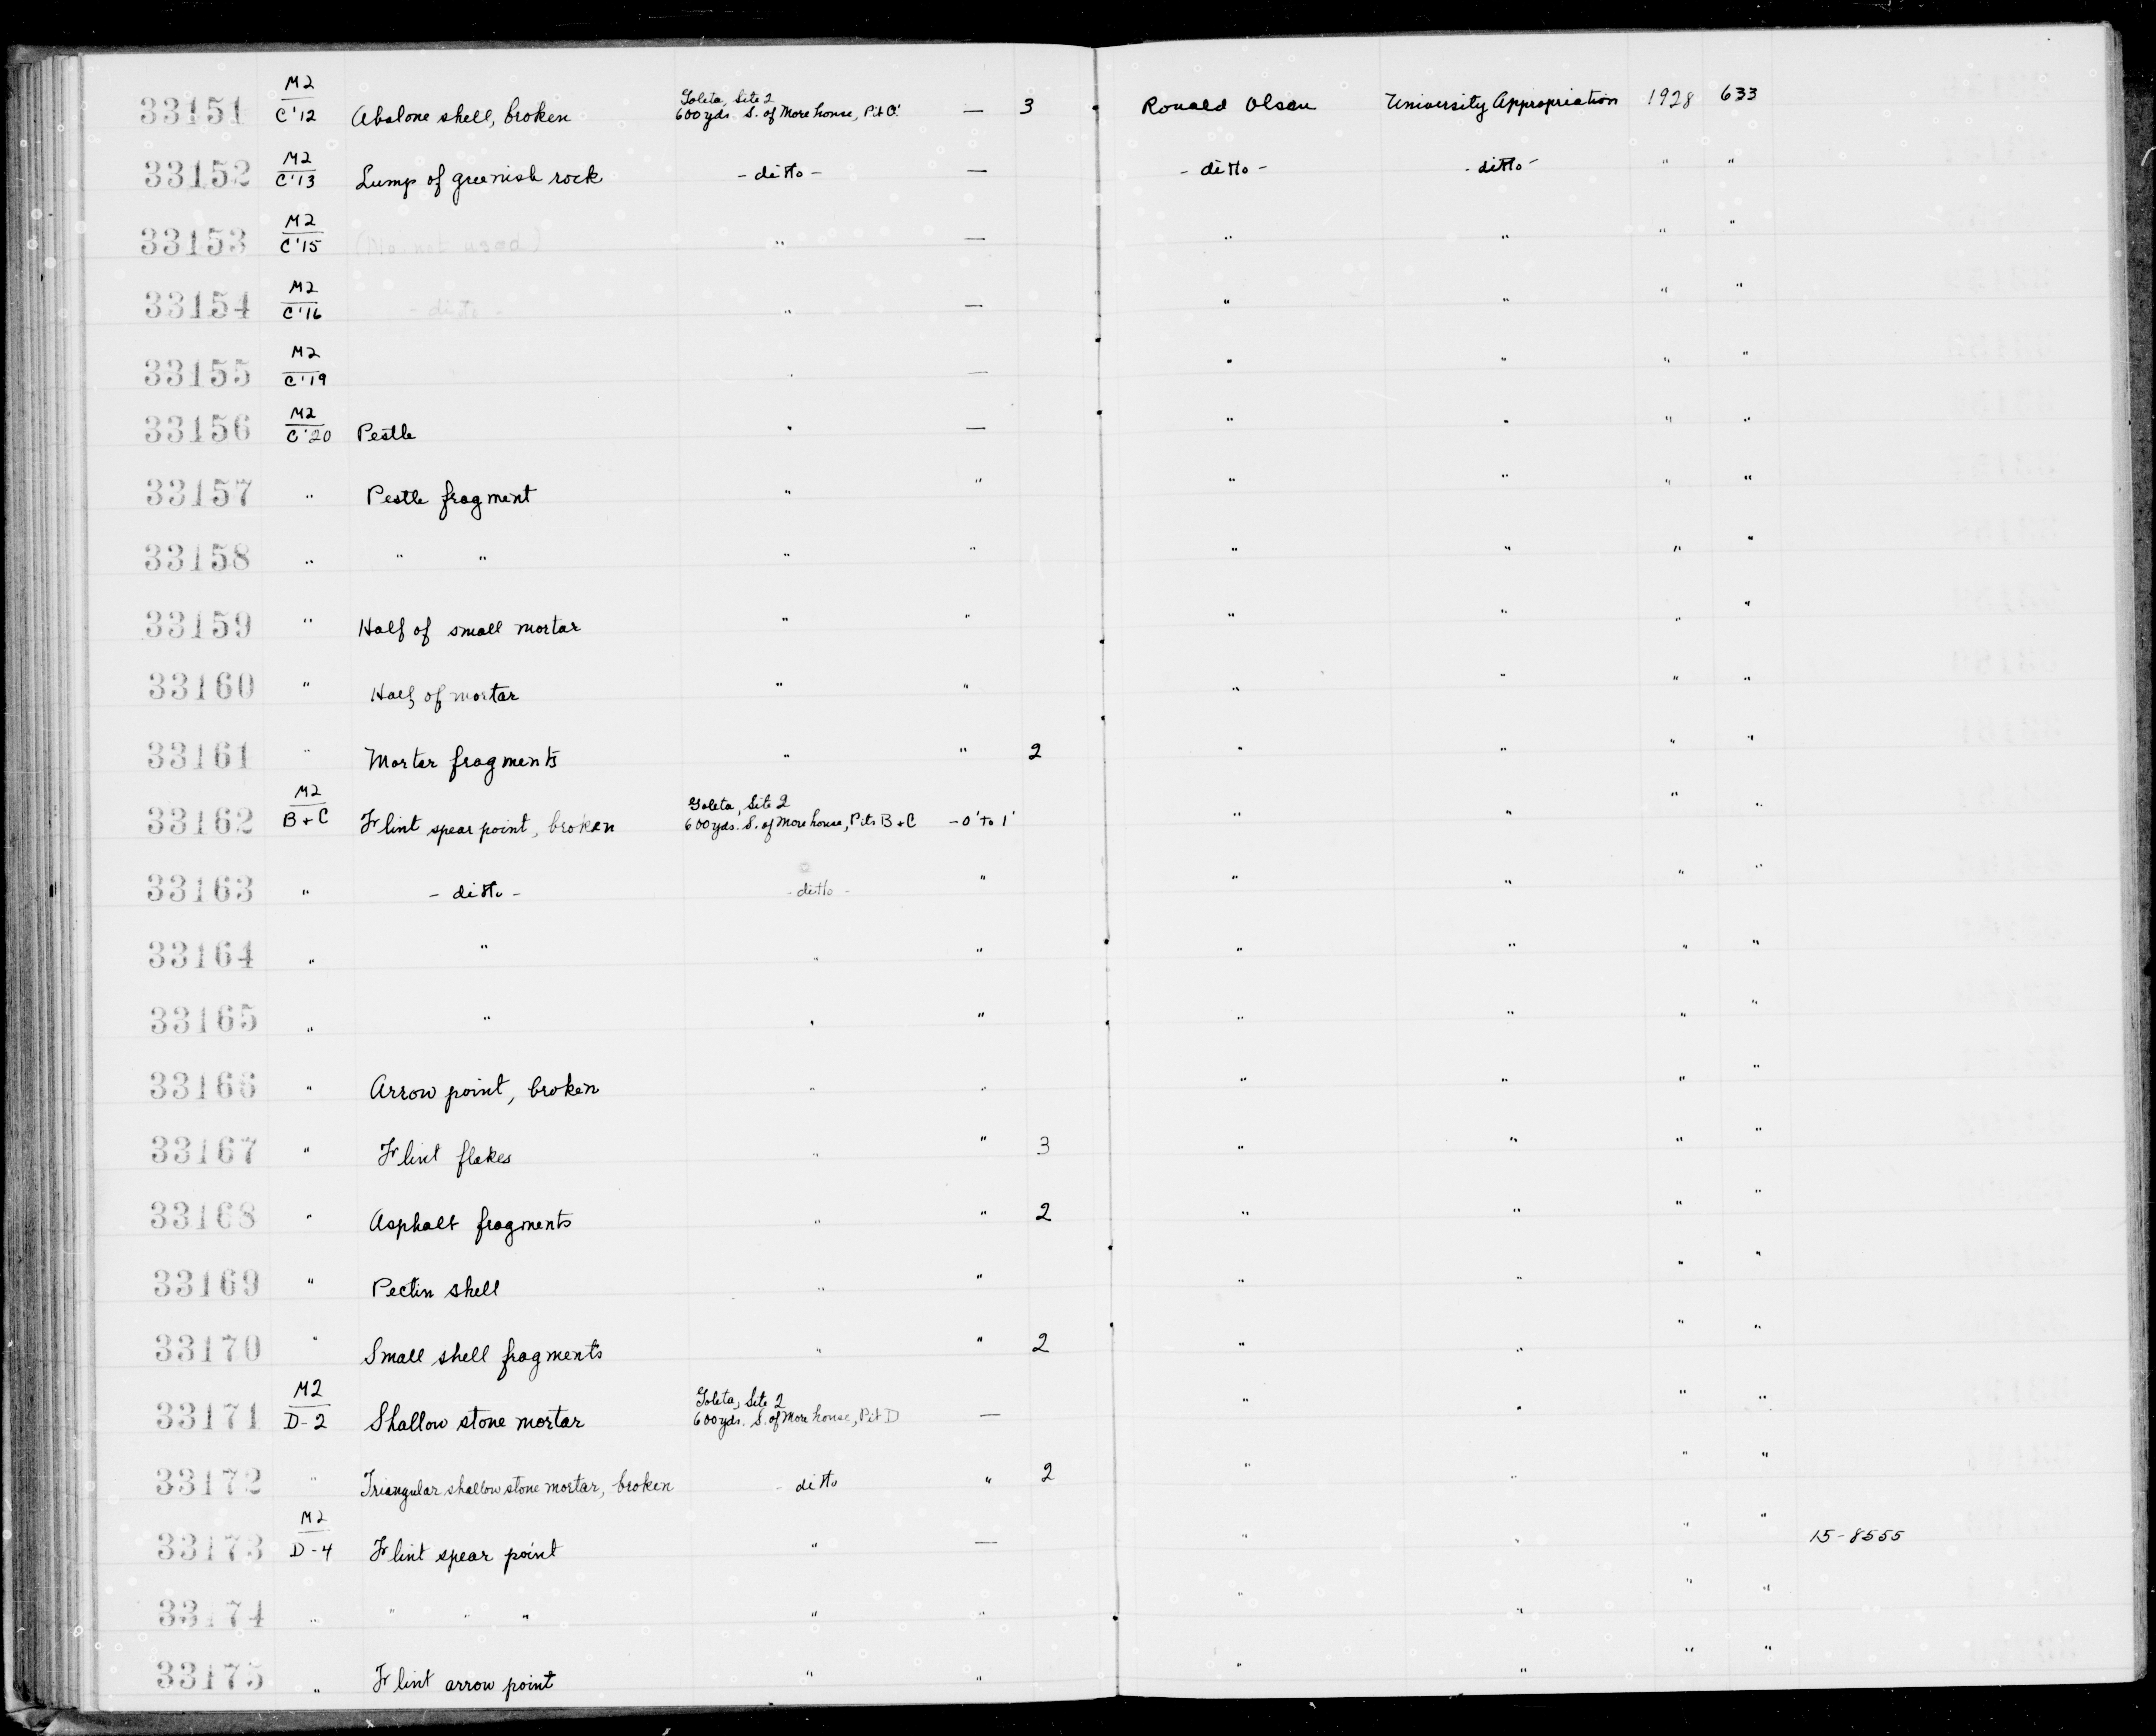 33151 M2/C'12 Abalone shell, broken Goleta, Site 2 600 yds. S. of More house, Pit C' — 3 Ronald Olson University Appropriation 1928 633
33152 M2/C'13 Lump of greenish rock - ditto - — - ditto - - ditto - " "
33153 M2/C'15 (No. not used) " — " " " "
33154 M2/C'16 - ditto - " — " " " "
33155 M2/C'19 " — " " " "
33156 M2/C'20 Pestle " — " " " "
33157 " Pestle fragment " " " " " "
33158 " " " " " " " " "
33159 " Half of small mortar " " " " " "
33160 " Half of mortar " " " " " "
33161 " Mortar fragments " " 2 " " " "
33162 M2/B+C Flint spear point, broken Goleta, Site 2 600 yds. S. of More house, Pits B+C -0' to 1' " " " "
33163 " - ditto - - ditto - " " " " "
33164 " " " " " " " "
33165 " " " " " " " "
33166 " Arrow point, broken " " " " " "
33167 " Flint flakes " " 3 " " " "
33168 " Asphalt fragments " " 2 " " " "
33169 " Pectin shell " " " " " "
33170 " Small shell fragments " " 2 " " " "
33171 M2/D-2 Shallow stone mortar Goleta, Site 2 600 yds. S. of More house, Pit D — " " " "
33172 " Triangular shallow stone mortar, broken - ditto " 2 " " " "
33173 M2/D-4 Flint spear point " — " " " " 15-8555
33174 " " " " " " " " " "
33175 " Flint arrow point " " " " " "